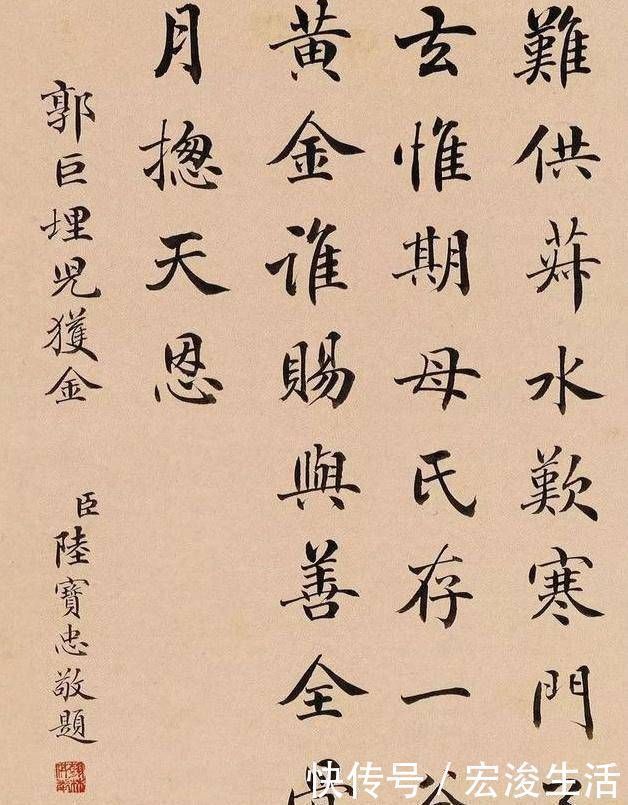 難供菽水歎寒門
玄惟期母氏存一
黄金誰賜與善全
月摠天恩
郭巨埋兒獲金
臣陸寶忠敬題
快传号/宏浚生活